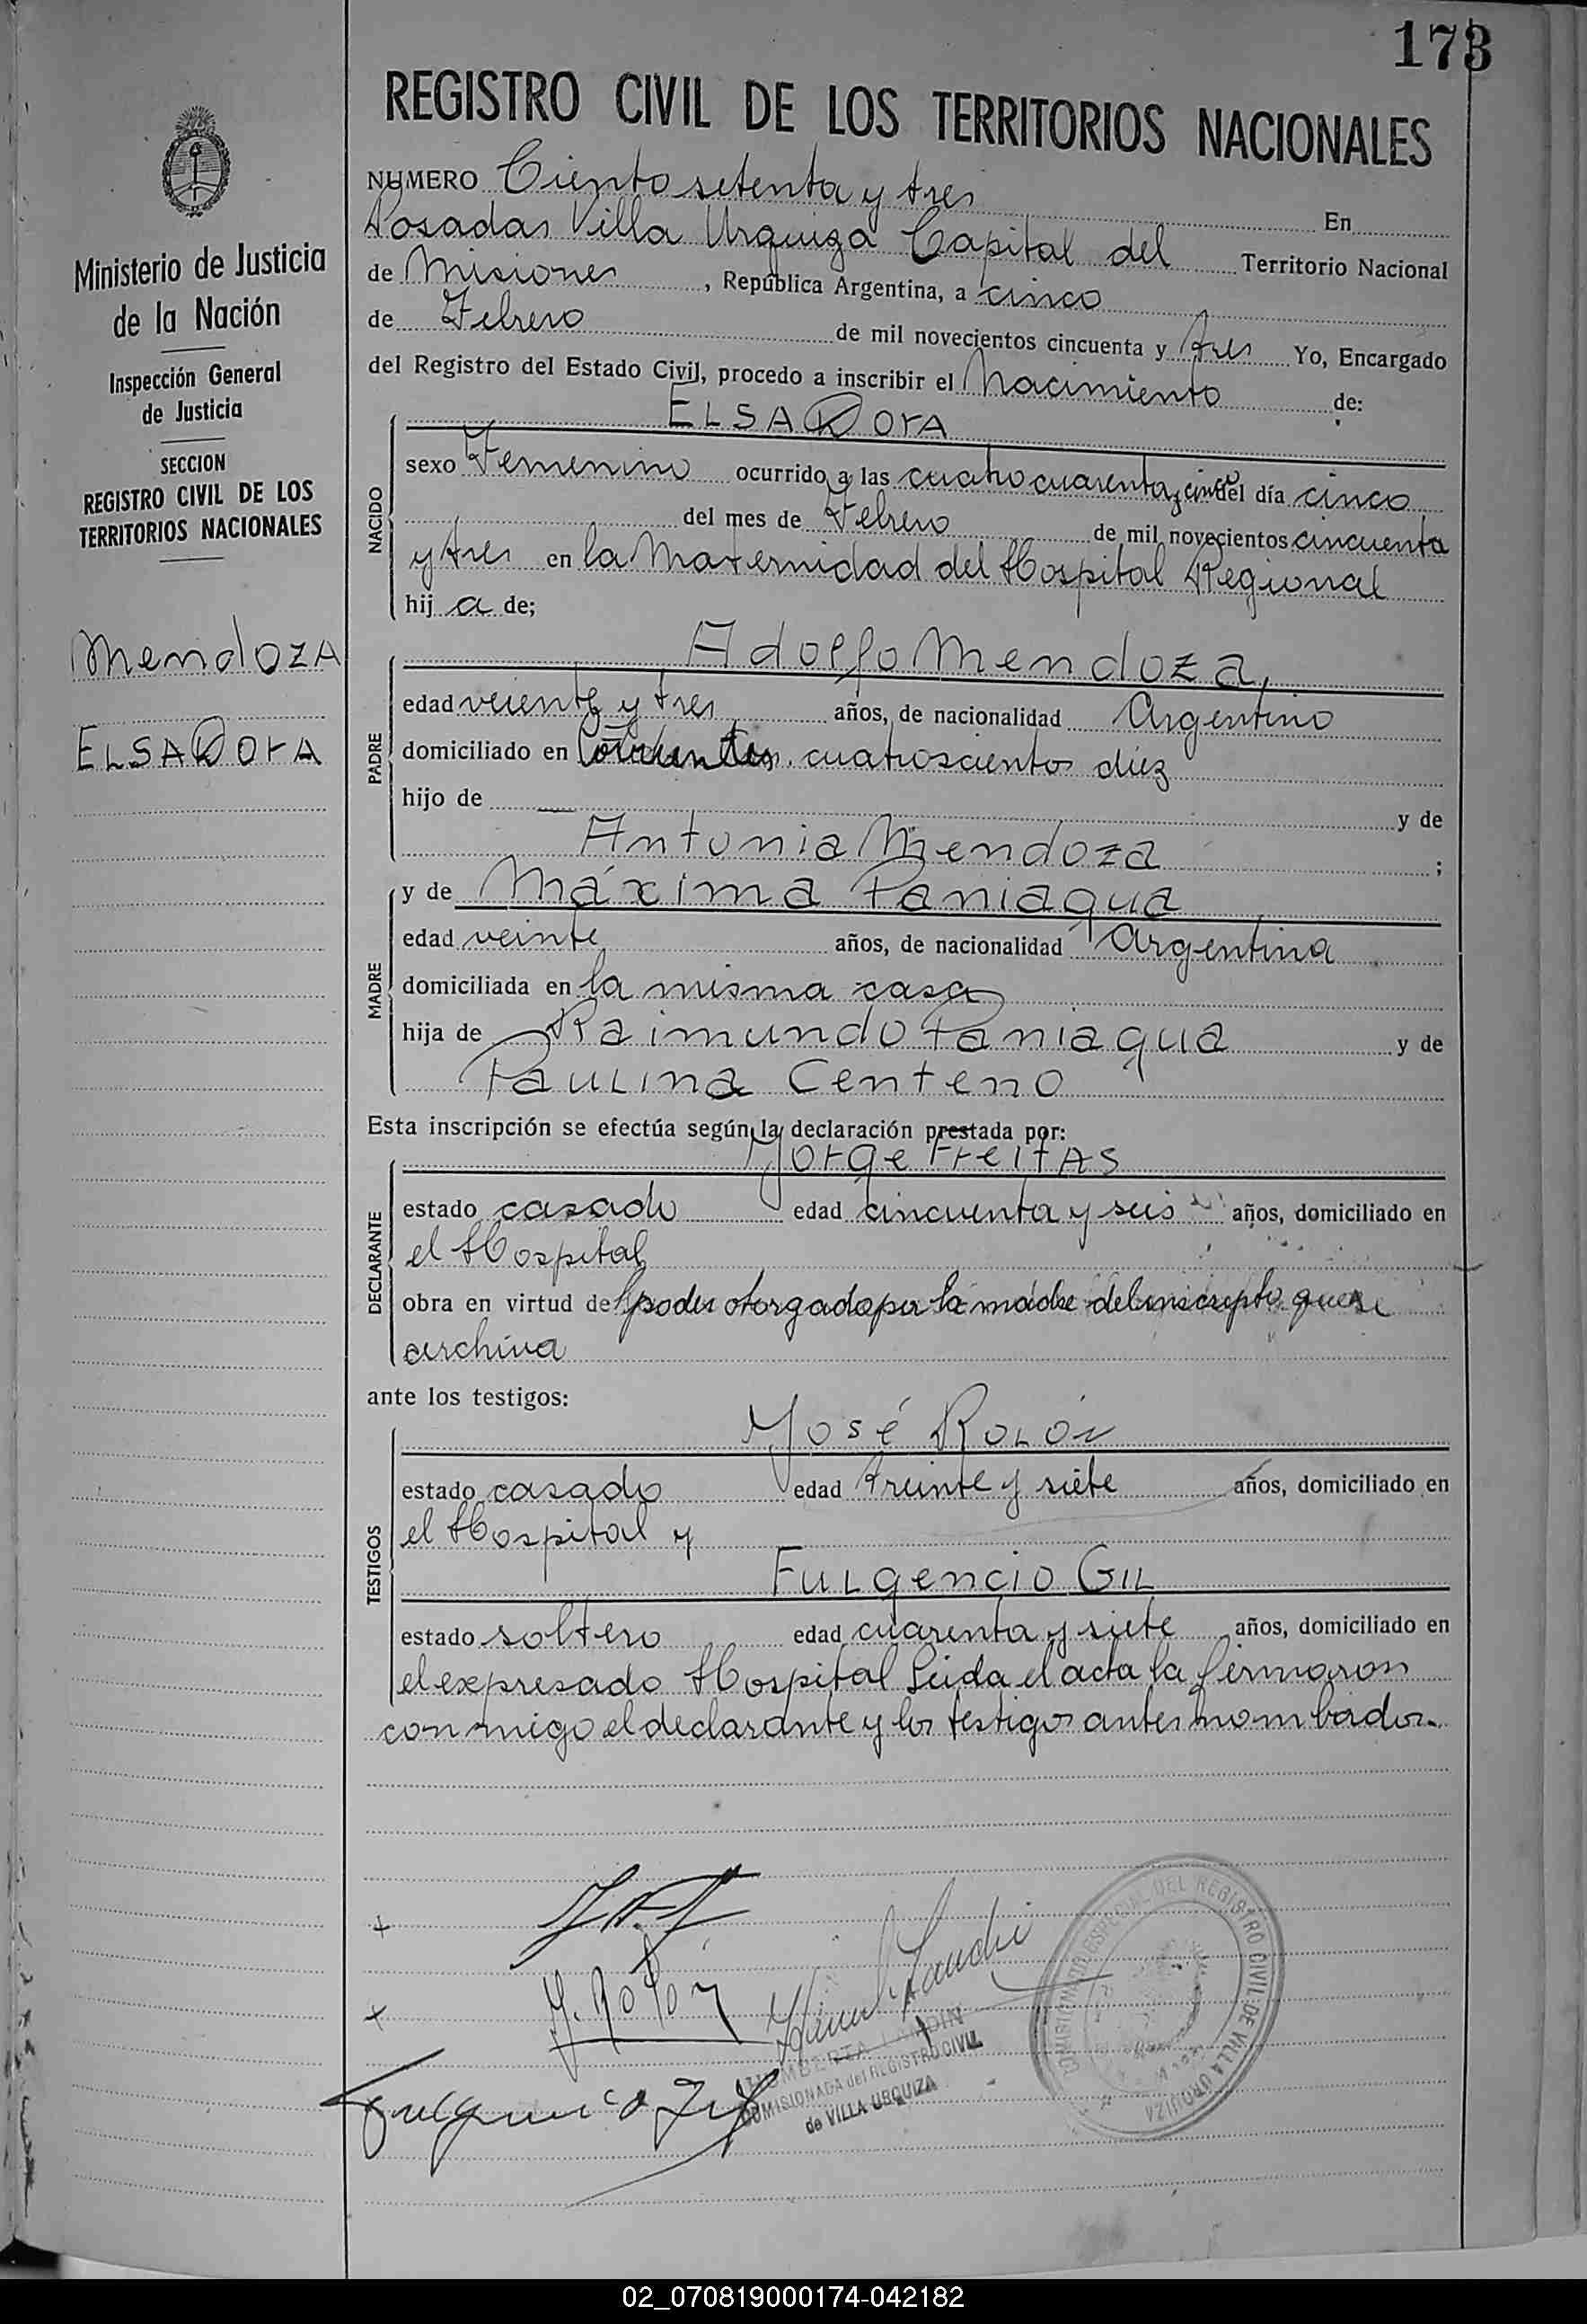 173
REGISTRO CIVIL DE LOS TERRITORIOS NACIONALES
Ministerio de Justicia
de la Nación
Inspección General
de Justicia
SECCION
REGISTRO CIVIL DE LOS
TERRITORIOS NACIONALES
Mendoza
ELSA Dora
NUMERO Ciento setenta y tres En
Posadas Villa Urquiza Capital del Territorio Nacional
de Misiones, República Argentina, a cinco
de Febrero de mil novecientos cincuenta y tres Yo, Encargado
del Registro del Estado Civil, procedo a inscribir el Nacimiento de:
NACIDO
ELSA Dora
sexo Femenino ocurrido a las cuatro cuarenta y cinco del día cinco
del mes de Febrero de mil novecientos cincuenta
y tres en la Maternidad del Hospital Regional
hij a de;
PADRE
Adolfo Mendoza,
edad veiente y tres años, de nacionalidad Argentino
domiciliado en Corrientes cuatroscientos diez
hijo de — y de
Antonia Mendoza ;
MADRE
y de Máxima Paniagua
edad veinte años, de nacionalidad Argentina
domiciliada en la misma casa
hija de Raimundo Paniagua y de
Paulina Centeno
Esta inscripción se efectúa según la declaración prestada por:
DECLARANTE
Jorge Freitas
estado casado edad cincuenta y seis años, domiciliado en
el Hospital
obra en virtud del poder otorgado por la madre del inscripto que se
archiva
ante los testigos:
TESTIGOS
José Rolón
estado casado edad treinte y siete años, domiciliado en
el Hospital y
Fulgencio Gil
estado soltero edad cuarenta y siete años, domiciliado en
el expresado Hospital Leida el acta la firmaron
conmigo el declarante y los testigos antes nombrados.
J. Rolón
Fulgencio Gil
HUMBERTA LANDIN
COMISIONADA del REGISTRO CIVIL
de VILLA URQUIZA
ESPECIAL DEL REGISTRO CIVIL DE VILLA URQUIZA
02_070819000174-042182